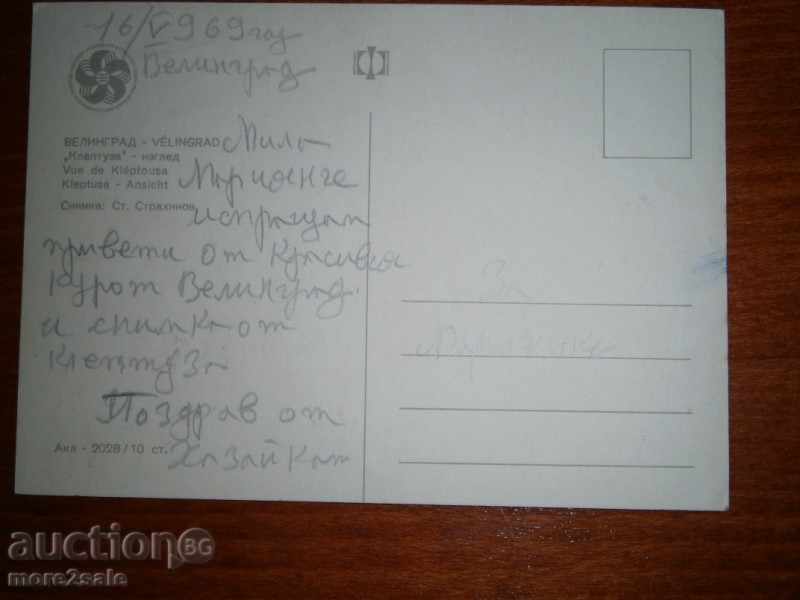 16/V 969 год
Велинград
ВЕЛИНГРАД - VÉLINGRAD
„Клептуза" - изглед
Vue de Kléptousa
Kleptusa - Ansicht
Снимка: Ст. Страхинов
Мила
Мариенче
испращам
привети от Красивия
Курот Велинград
и снимка от
Клептуза
Поздрав от
Хазайкат
Акл - 2028/10 ст.
За
auction BG
more2sale